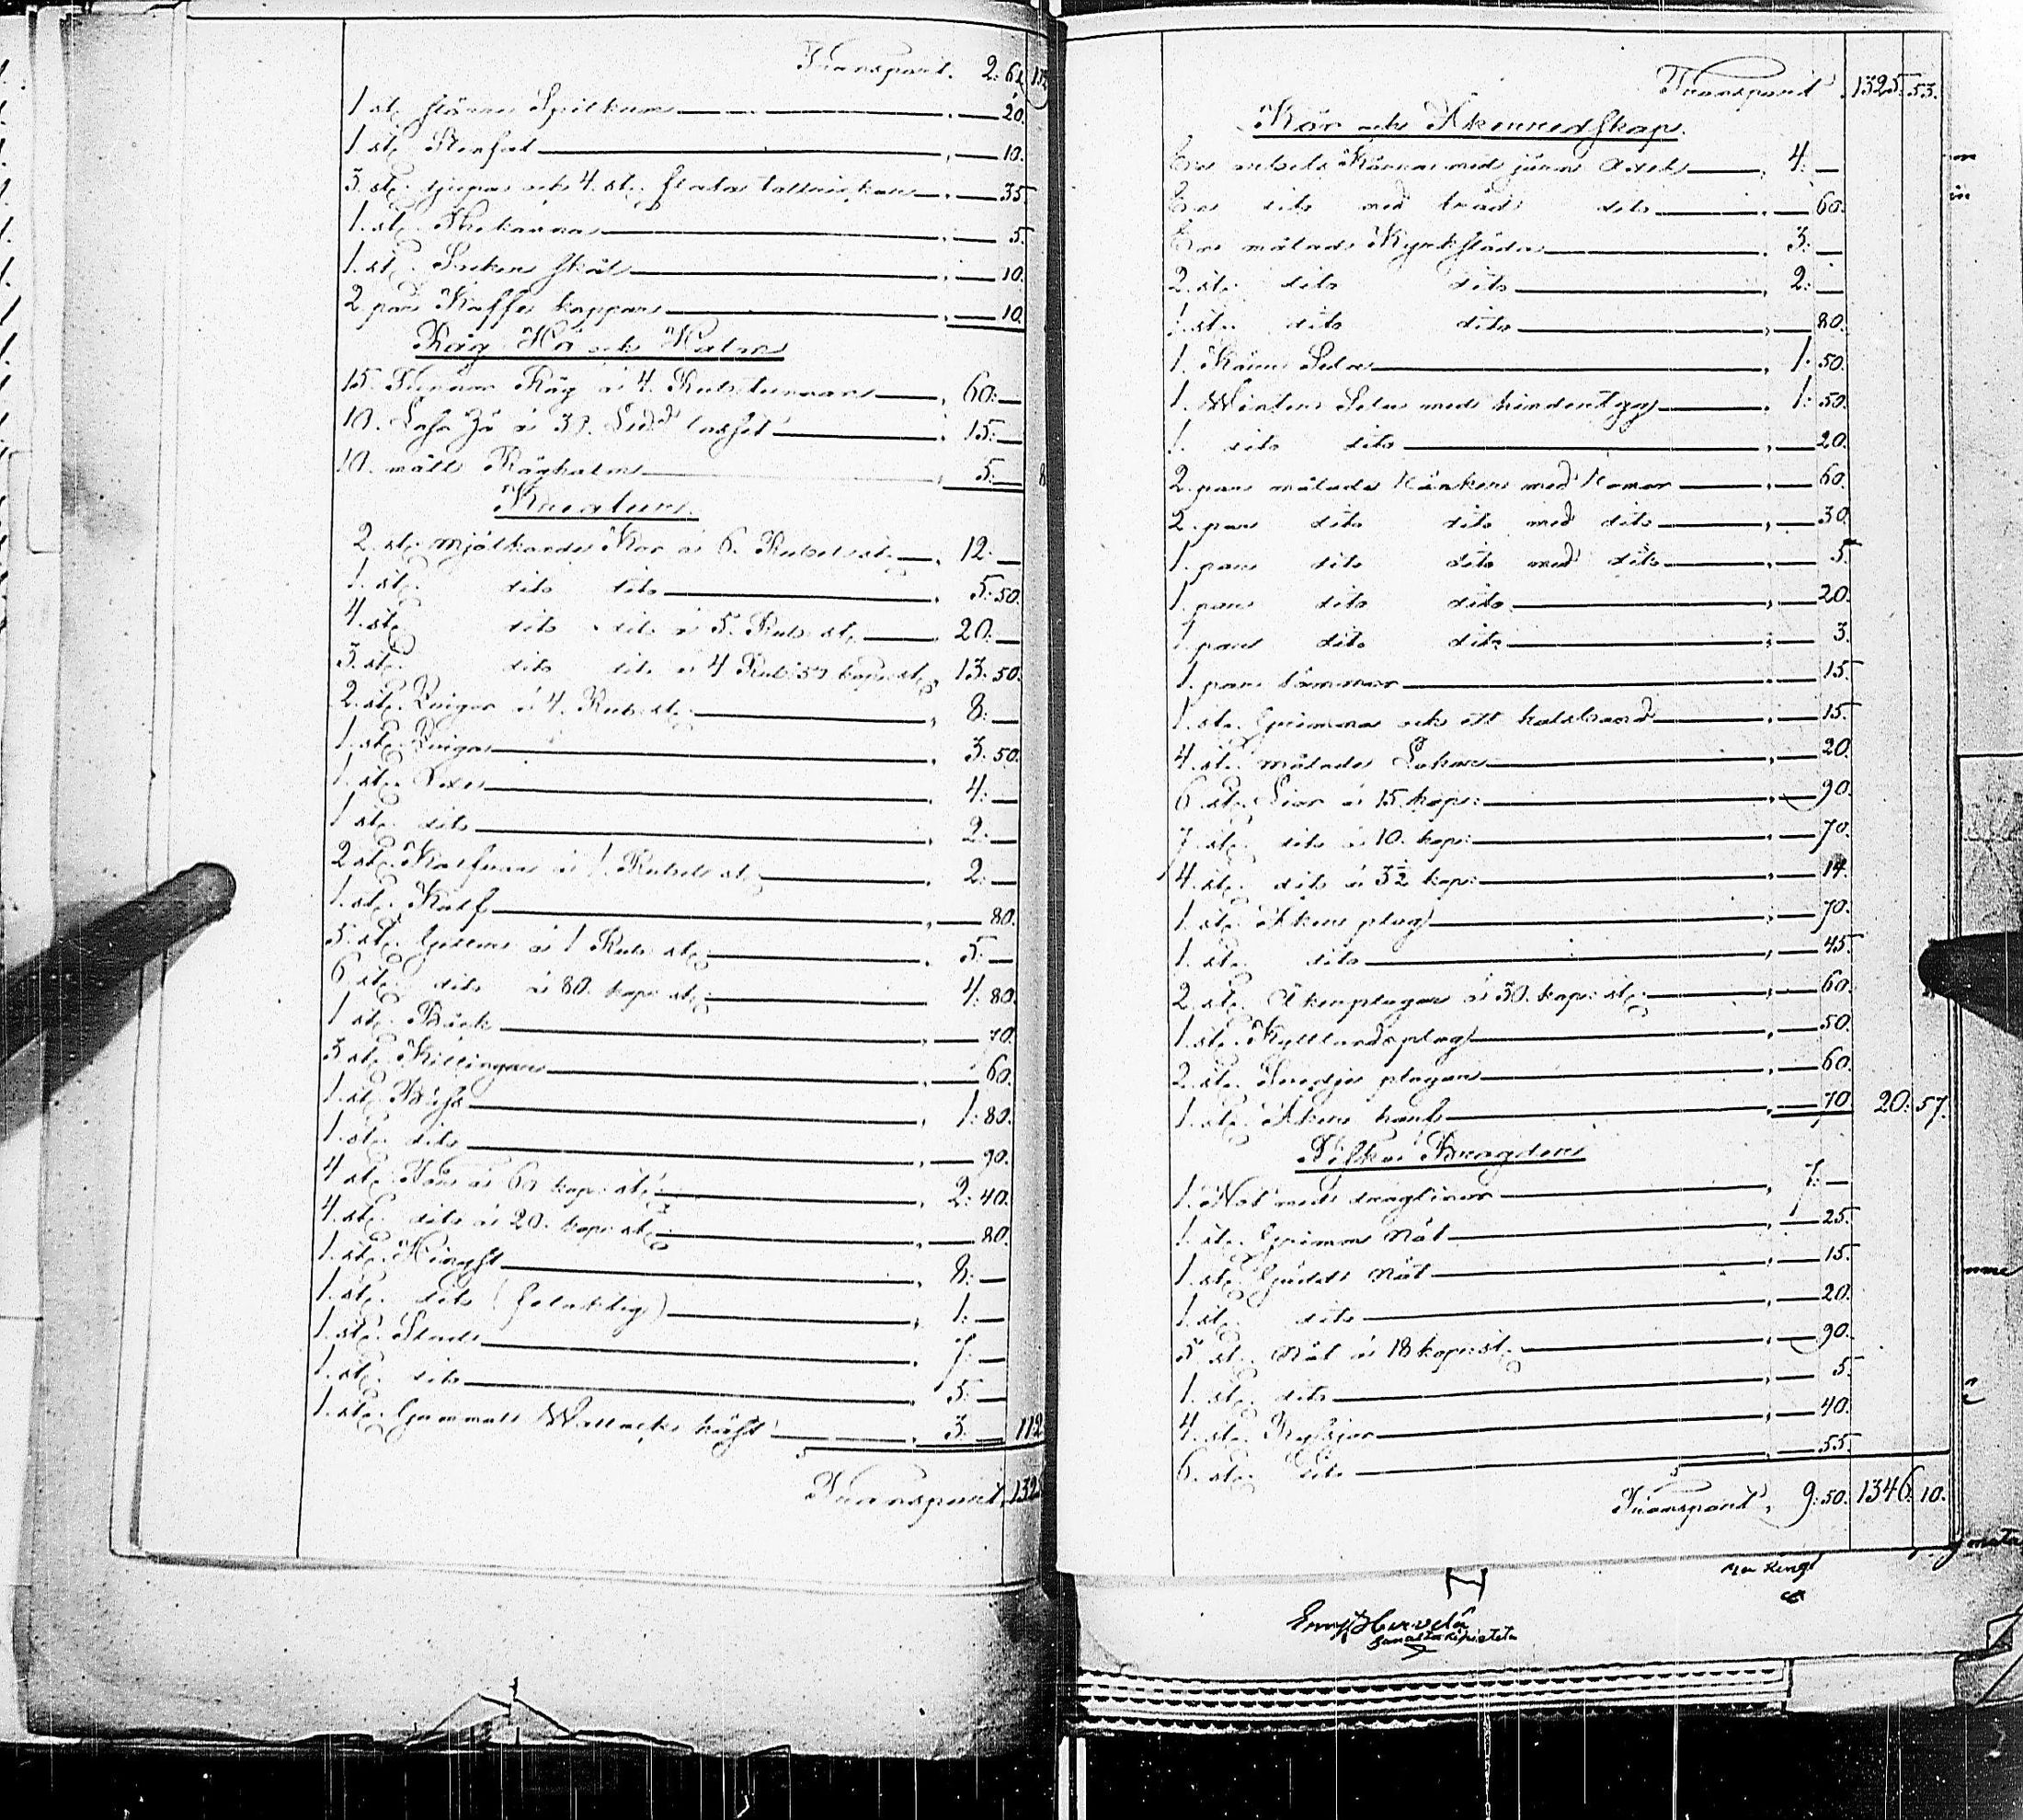 Transport. 2: 62
1 st. större Spilkum , — 20.
1 st. Stenfat , — 10.
3. st. djupa och 4. st. flata talrickar , — 35.
1. st. Thekanna , — 5.
1. st. Socker skål , — 10.
2 par Kaffe koppar , — 10.
Råg Hö och Halm
15. Tunnor Råg á 4. Rub. tunnan , 60: —
10. Lass Hö lasset , 15: —
10. mått Råghalm , 5: —
Kreatur.
2. st. mjölkande Kor á 6. Rubel st. , 12: —
1. st. dito dito , 5: 50.
4. st. dito dito á 5. Rub. st. , 20: —
3. st. dito dito á 4 Rub: 50 kop: st. , 13: 50.
2. st. Qvigor á 4. Rub. st. , 8: —
1. st. Qviga , 3: 50.
1. st. Oxe , 4: —
1 st. dito , 2: —
2 st. Kalfvar á 1. Rubel st. , 2: —
1. st. Kalf , — 80.
5. st. Getter á 1 Rub. st. , 5: —
6 st. dito á 80. kop: st. , 4: 80.
1 st. Bock , — 70.
3 st. Killingar , — 60.
1. st. , 1: 80.
1. st. dito , — 90.
4 st. Får á 60 kop: st. , 2: 40.
4. st. dito á 20. kop: st. , — 80.
1. st. Hingst , 8: —
1. st. dito (felaktig) , 1: —
1. st. Stod , 7: —
1. st. dito , 5: —
1. st. Gammalt Wallacks häst , 3: — 112
Transport, 132
Transport , 1325. 53.
Kör och Åkerredskap.
En arbets Kärra med järn axel , 4: —
En dito med träd dito , — 60.
En målad Kyrksläda , 3: —
2. st. dito dito , 2: —
1. st. dito dito , — 80.
1. Kärr Sela , 1: 50.
1. Winter Sela med hindertyg , 1: 50.
1. dito dito , — 20.
2. par målade med , — 60.
2. par dito dito med dito , — 30.
1. par dito dito med dito , — 5.
1. par dito dito , — 20.
1. par dito dito , — 3.
1. par tömmar , — 15.
1. st. Grimma och ett halsband , — 15.
4. st. målade , — 20.
6 st. Liar á 15. kop: , — 90.
7. st. dito á 10. kop: , — 70.
4. st. dito á 3½ kop: , — 14.
1. st. Åker plog , — 70.
1. st. dito , — 45.
2. st. Åkerplogar á 30. kop: st. , — 60.
1. st. Kyttlandsplog , — 50.
2. st. plogar , — 60.
1. st. Åker harf , — 70. 20: 57.
Fiske Bragder
1. Not med draglinor , 7: —
1. st. Grimm Nät , — 25.
1. st. Gädd Nät , — 15.
1. st. dito , — 20.
5. st. Nät á 18 kop: st. , — 90.
1. st. dito , — 5.
4. st. Ryssjor , — 40.
6. st. dito , — 55.
Transport , 9: 50. 1346. 10.